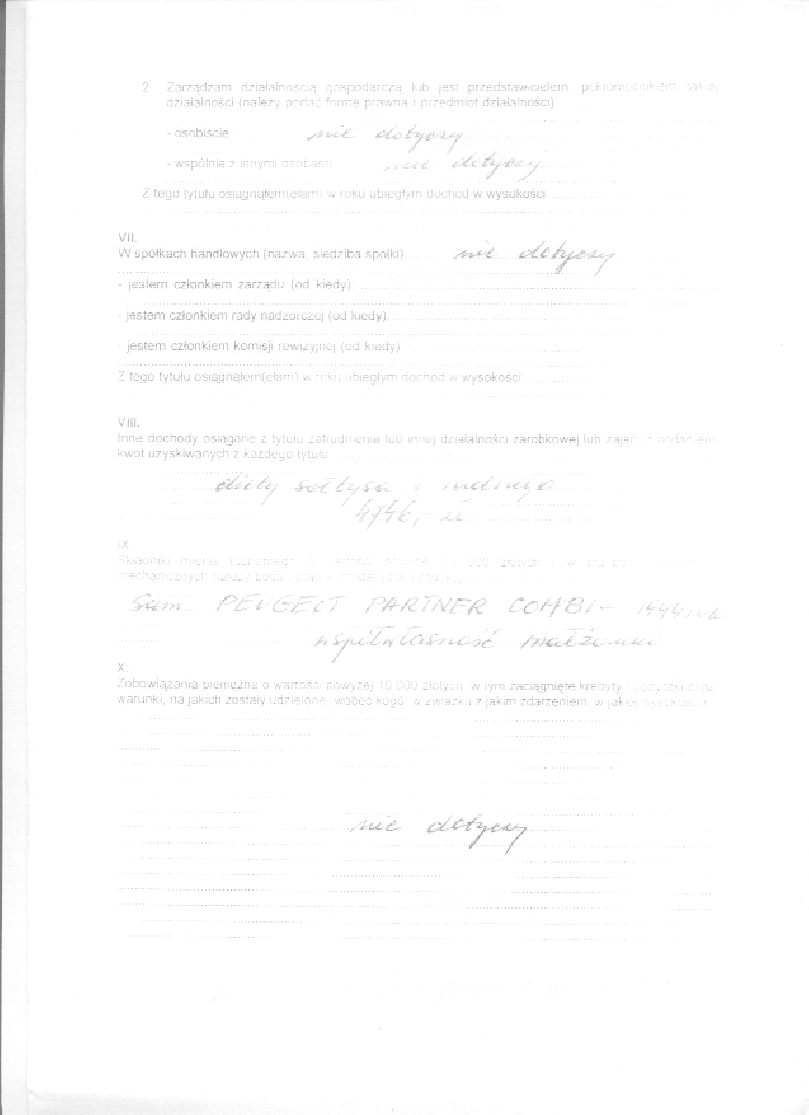 2. Zarządzam działalnością gospodarczą lub jest przedstawicielem, pełnomocnikiem takiej
działalności (należy podać formę prawną i przedmiot działalności)
- osobiście nie dotyczy
- wspólnie z innymi osobami nie dotyczy
Z tego tytułu osiągnąłem(ełam) w roku ubiegłym dochód w wysokości:
VII.
W spółkach handlowych (nazwa, siedziba spółki) nie dotyczy
- jestem członkiem zarządu (od kiedy):
- jestem członkiem rady nadzorczej (od kiedy):
- jestem członkiem komisji rewizyjnej (od kiedy)
Z tego tytułu osiągnąłem(ełam) w roku ubiegłym dochód w wysokości:
VIII.
Inne dochody osiągane z tytułu zatrudnienia lub innej działalności zarobkowej lub zajęć, z podaniem
kwot uzyskiwanych z każdego tytułu
diety sołtysa i radnego
4746,- zł
IX.
Składniki mienia ruchomego o wartości powyżej 10 000 złotych
mechanicznych należy podać
Sam. PEUGEOT PARTNER COMBI -
współwłasność małżonki
X.
Zobowiązania pieniężne o wartości powyżej 10 000 złotych, w tym zaciągnięte kredyty i pożyczki oraz
warunki, na jakich zostały udzielone (wobec kogo, w związku z jakim zdarzeniem, w jakiej wysokości)
nie dotyczy